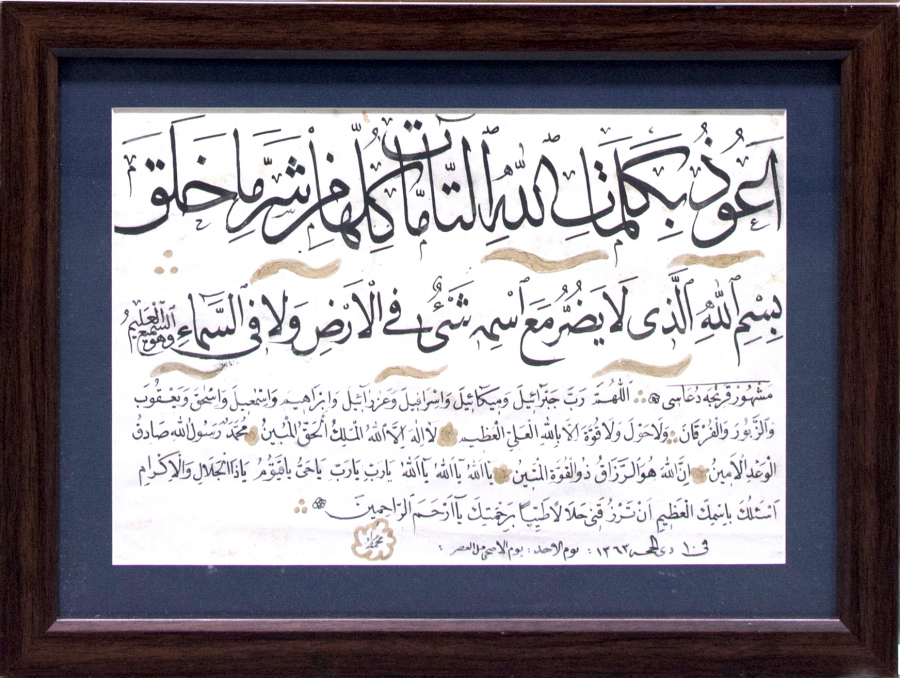 اَعُوذُ بِكَلِمَاتِ اللّٰهِ التَّامَّاتِ كُلِّهَا مِنْ شَرِّ مَا خَلَقَ
بِسْمِ اللّٰهِ الَّذِى لَا يَضُرُّ مَعَ اسْمِهِ شَىْءٌ فِى الْاَرْضِ وَلَا فِى السَّمَاءِ وَهُوَ السَّمِيعُ الْعَلِيمُ
مشهور قرنجه دعاسى اَللّٰهُمَّ رَبَّ جَبْرَائِيلَ وَمِيكَائِيلَ وَاِسْرَافِيلَ وَعَزْرَائِيلَ وَاِبْرَاهِيمَ وَاِسْمٰعِيلَ وَاِسْحٰقَ وَيَعْقُوبَ
وَالزَّبُورَ وَالْفُرْقَانَ وَلَا حَوْلَ وَلَا قُوَّةَ اِلَّا بِاللّٰهِ الْعَلِىِّ الْعَظِيمِ لَا اِلٰهَ اِلَّا اللّٰهُ الْمَلِكُ الْحَقُّ الْمُبِينُ مُحَمَّدٌ رَسُولُ اللّٰهِ صَادِقُ
الْوَعْدِ الْاَمِينُ اِنَّ اللّٰهَ هُوَ الرَّزَّاقُ ذُو الْقُوَّةِ الْمَتِينُ يَا اَللّٰهُ يَا اَللّٰهُ يَا اَللّٰهُ يَارَبِّ يَارَبِّ يَارَبِّ يَاحَىُّ يَاقَيُّومُ يَاذَا الْجَلَالِ وَالْاِكْرَامِ
اَسْئَلُكَ بِاسْمِكَ الْعَظِيمِ اَنْ تَرْزُقَنِى حَلَالًا طَيِّبًا بِرَحْمَتِكَ يَا اَرْحَمَ الرَّاحِمِينَ
فى ١٠ ذى الحجه ١٣٦٣ : يوم الاحد : يوم الاضحى العصر :